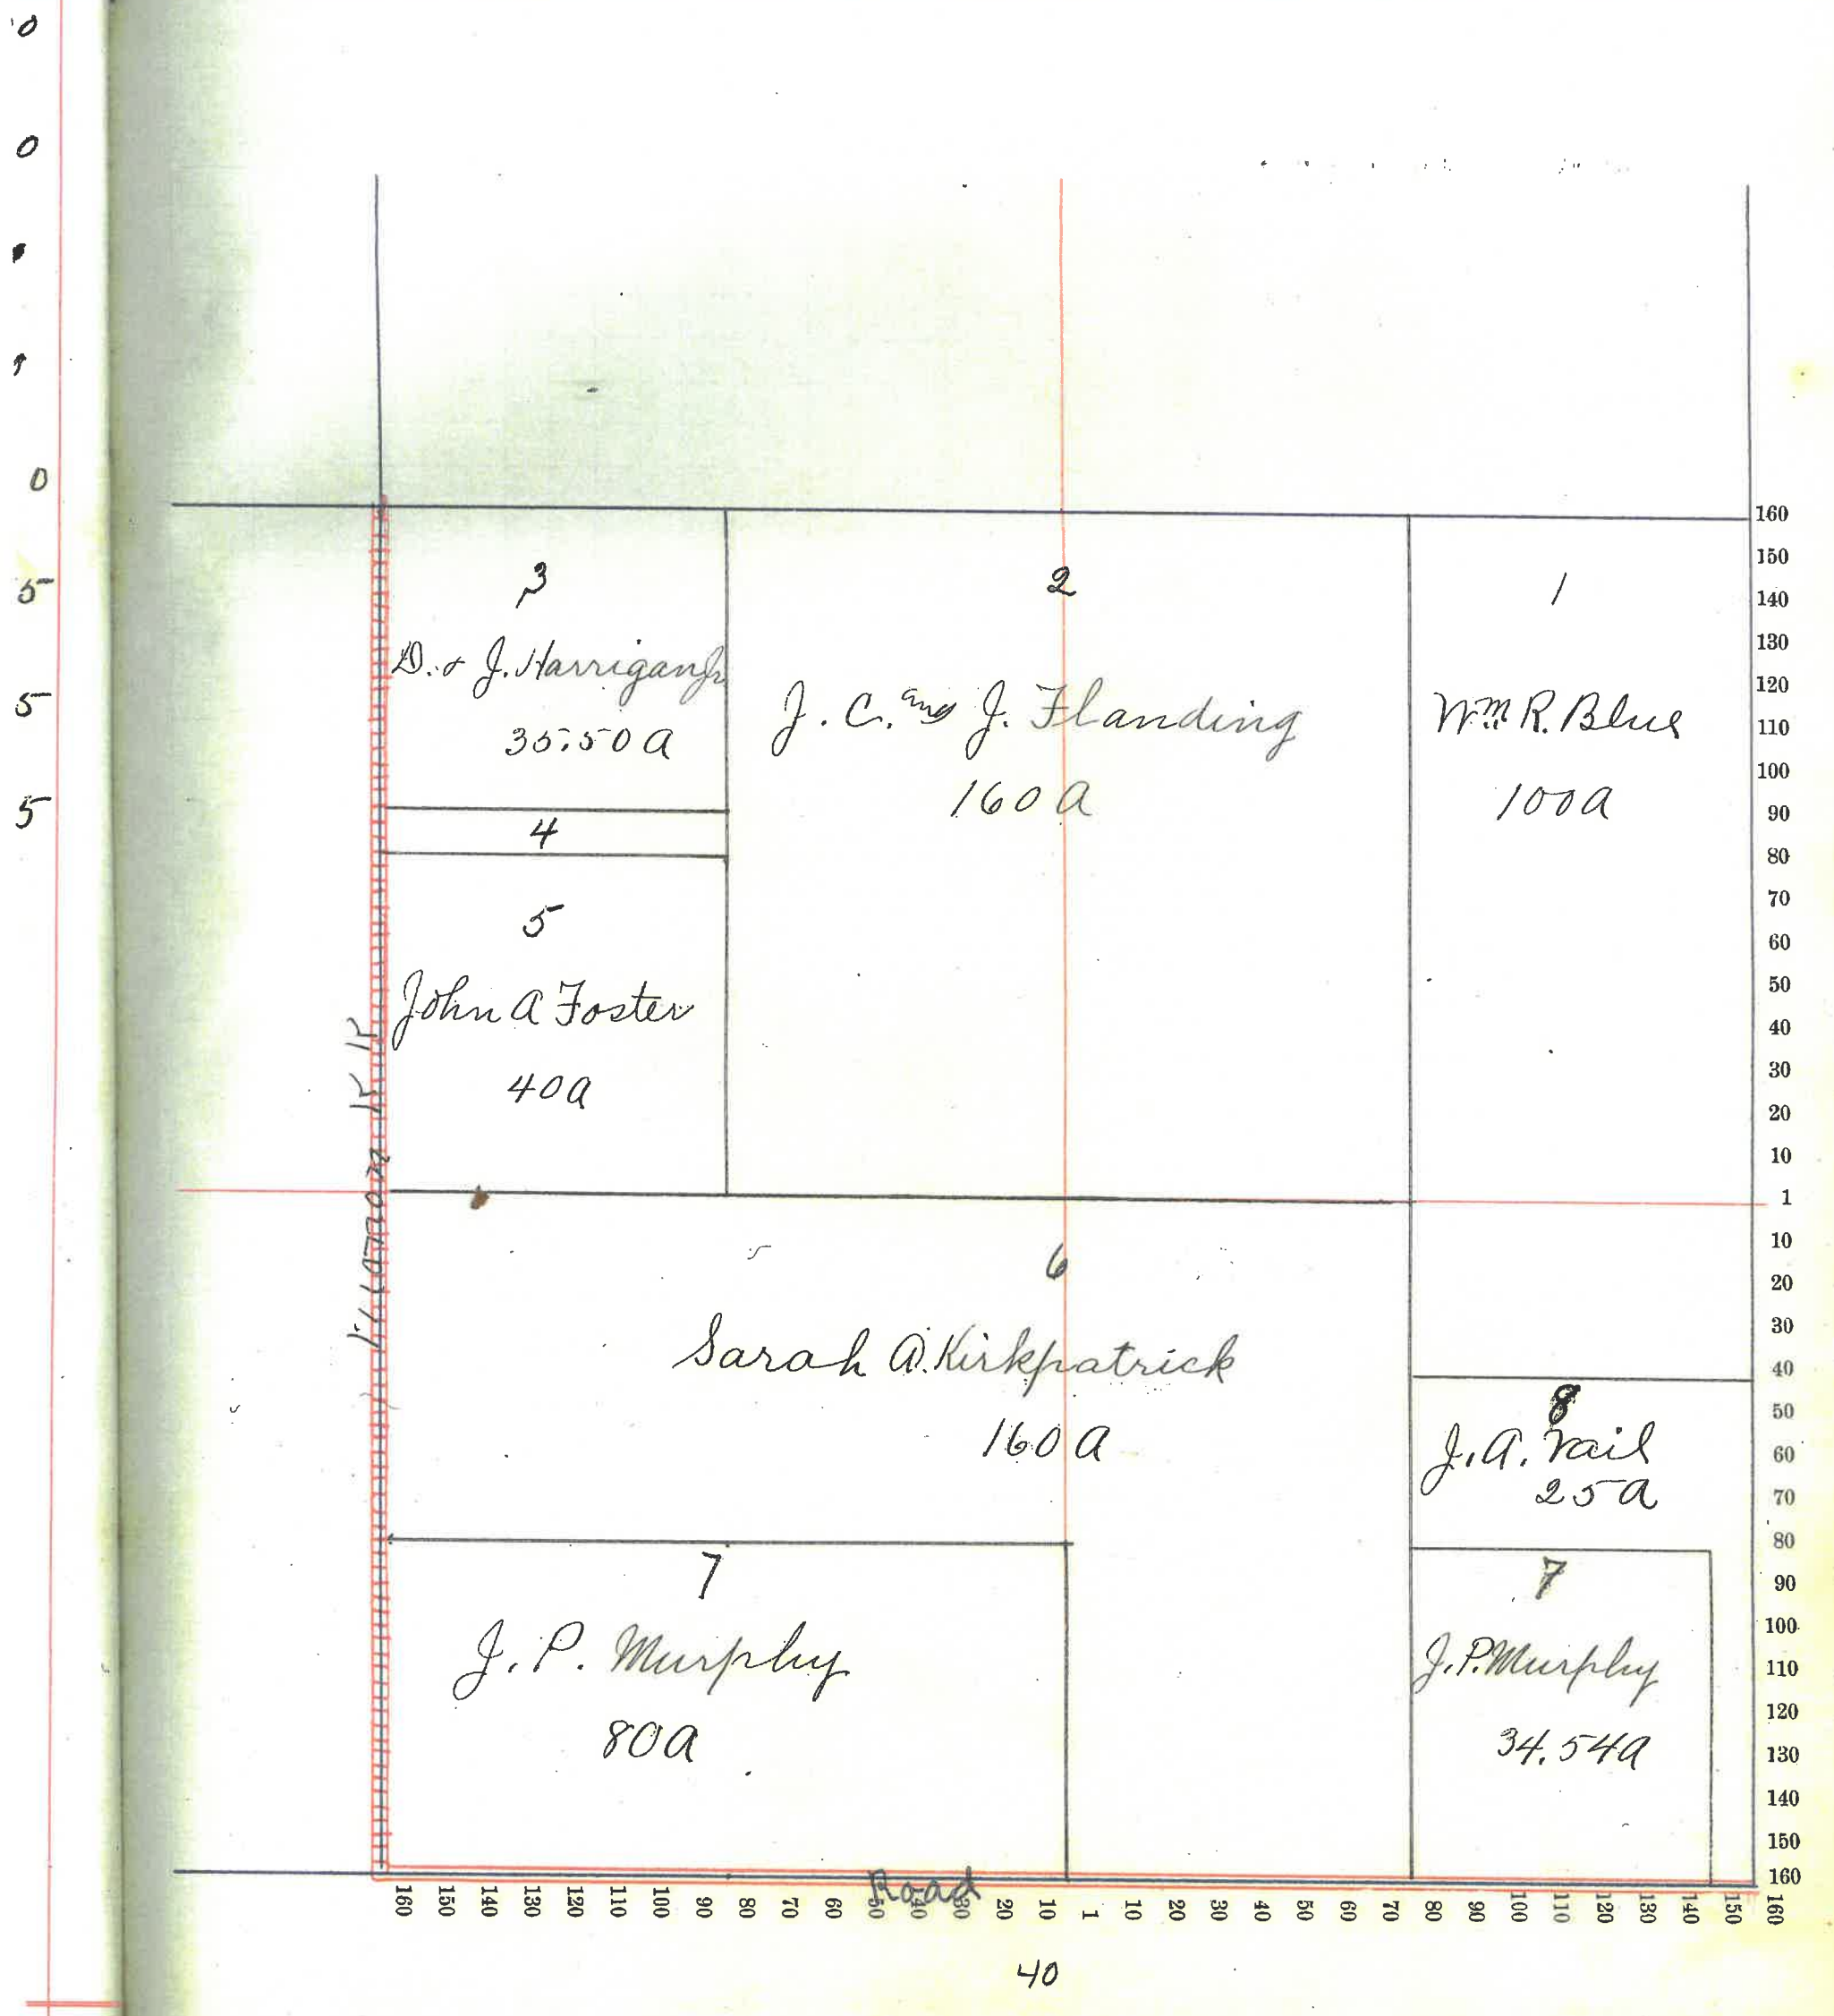 0
0
0
5
5
5
3
D. & J. Harrigan Jr
35.50 a
2
J. C. and J. Flanding
160 a
1
Wm R. Blue
100 a
4
5
John A Foster
40 a
6
Sarah A. Kirkpatrick
160 a
8
J. A. Vail
25 a
7
J. P. Murphy
80 a
7
J. P. Murphy
34.54 a
R R
Road
160
150
140
130
120
110
100
90
80
70
60
50
40
30
20
10
1
10
20
30
40
50
60
70
80
90
100
110
120
130
140
150
160
160 150 140 130 120 110 100 90 80 70 60 50 40 30 20 10 1 10 20 30 40 50 60 70 80 90 100 110 120 130 140 150 160
40